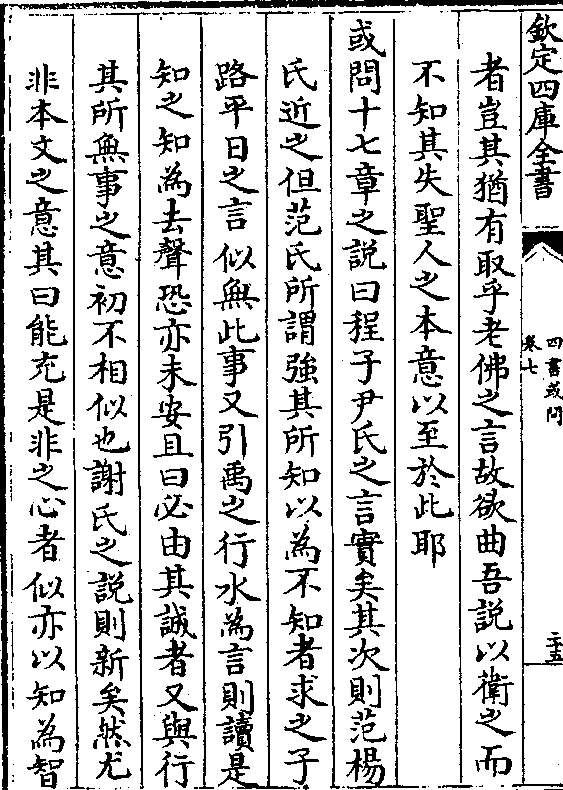 欽定四庫全書
四書或問
卷七
二十五
者豈其猶有取乎老佛之言故欲曲吾說以衛之而
不知其失聖人之本意以至於此耶
或問十七章之說曰程子尹氏之言實矣其次則范楊
氏近之但范氏所謂強其所知以為不知者求之子
路平日之言似無此事又引禹之行水為言則讀是
知之知為去聲恐亦未安且曰必由其誠者又與行
其所無事之意初不相似也謝氏之說則新矣然尤
非本文之意其曰能充是非之心者似亦以知為智